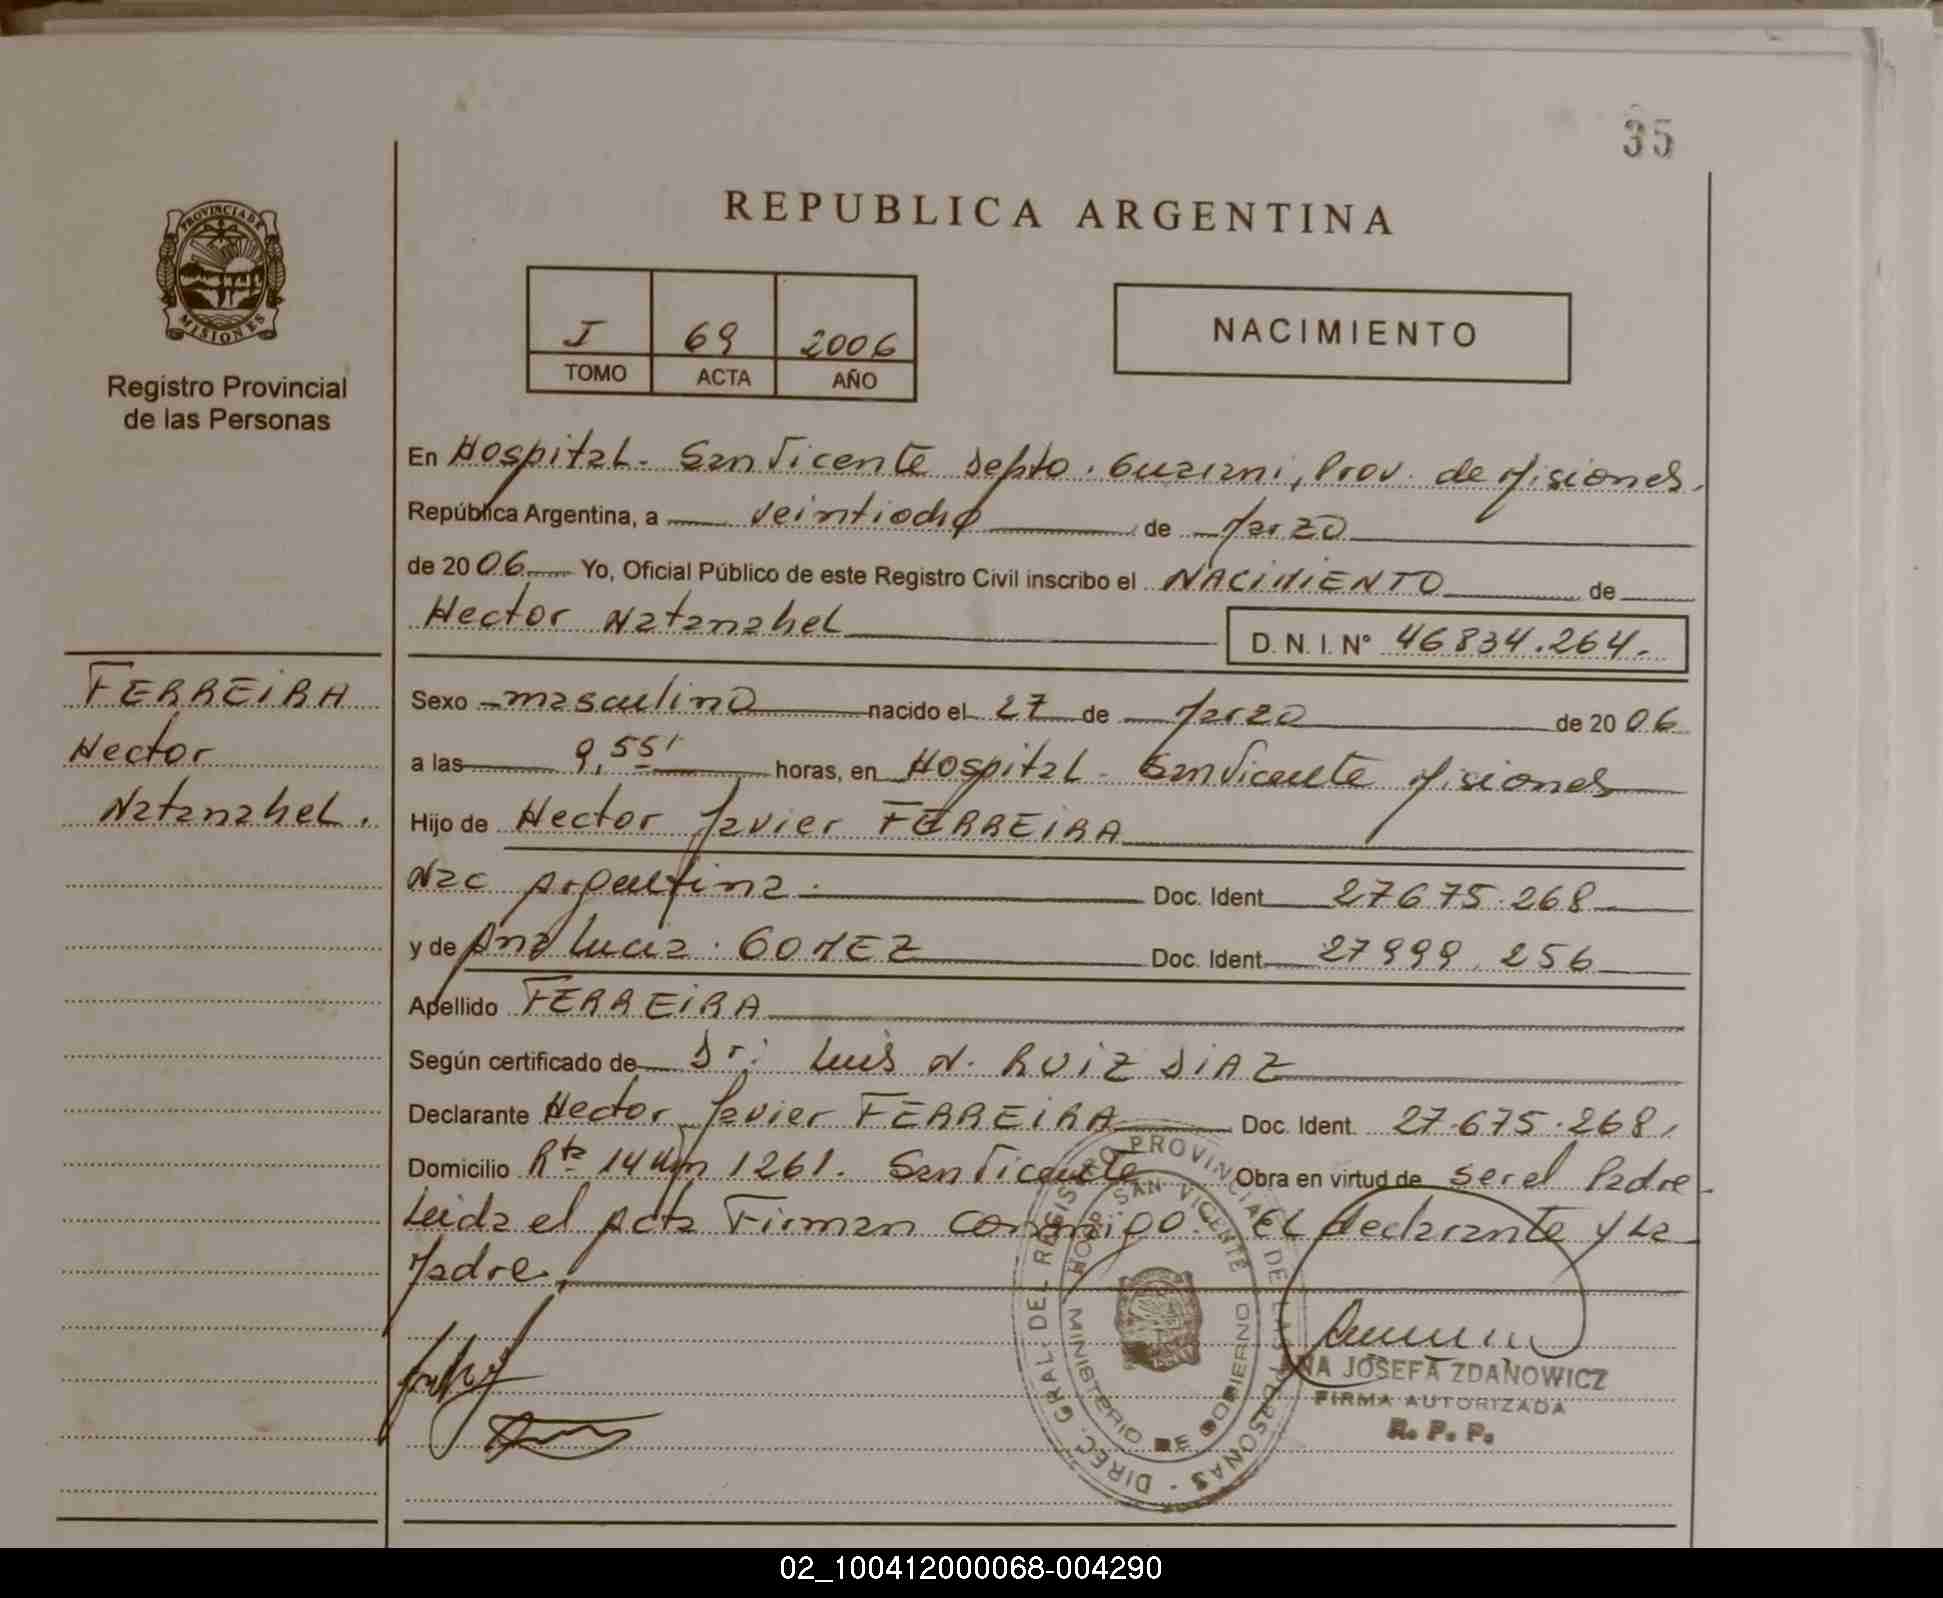 35
REPUBLICA ARGENTINA
PROVINCIA DE
MISIONES
Registro Provincial
de las Personas
I 69 2006
TOMO ACTA AÑO
NACIMIENTO
En Hospital - San Vicente Depto. Guarani, Prov. de Misiones.
República Argentina, a veintiocho de Marzo
de 2006 Yo, Oficial Público de este Registro Civil inscribo el NACIMIENTO de
Hector Natanahel D. N. I. N° 46834.264.
FERREIRA
Hector
Natanahel.
Sexo masculino nacido el 27 de Marzo de 2006
a las 9,55' horas, en Hospital - San Vicente Misiones
Hijo de Hector Javier FERREIRA
Nac Argentina. Doc. Ident 27675.268
y de Ana Lucia. GOMEZ Doc. Ident. 27999.256
Apellido FERREIRA
Según certificado de Dr: Luis N. RUIZ DIAZ
Declarante Hector Javier FERREIRA Doc. Ident. 27.675.268,
Domicilio Rta 14 Km 1261. San Vicente Obra en virtud de ser el Padre
Leida el Acta Firman conmigo. El declarante y La
Madre.
DIREC. GRAL. DEL REGISTRO PROVINCIAL DE LAS PERSONAS -
HOSP. SAN VICENTE
MINISTERIO DE GOBIERNO
ANA JOSEFA ZDANOWICZ
FIRMA AUTORIZADA
R. P. P.
02_100412000068-004290